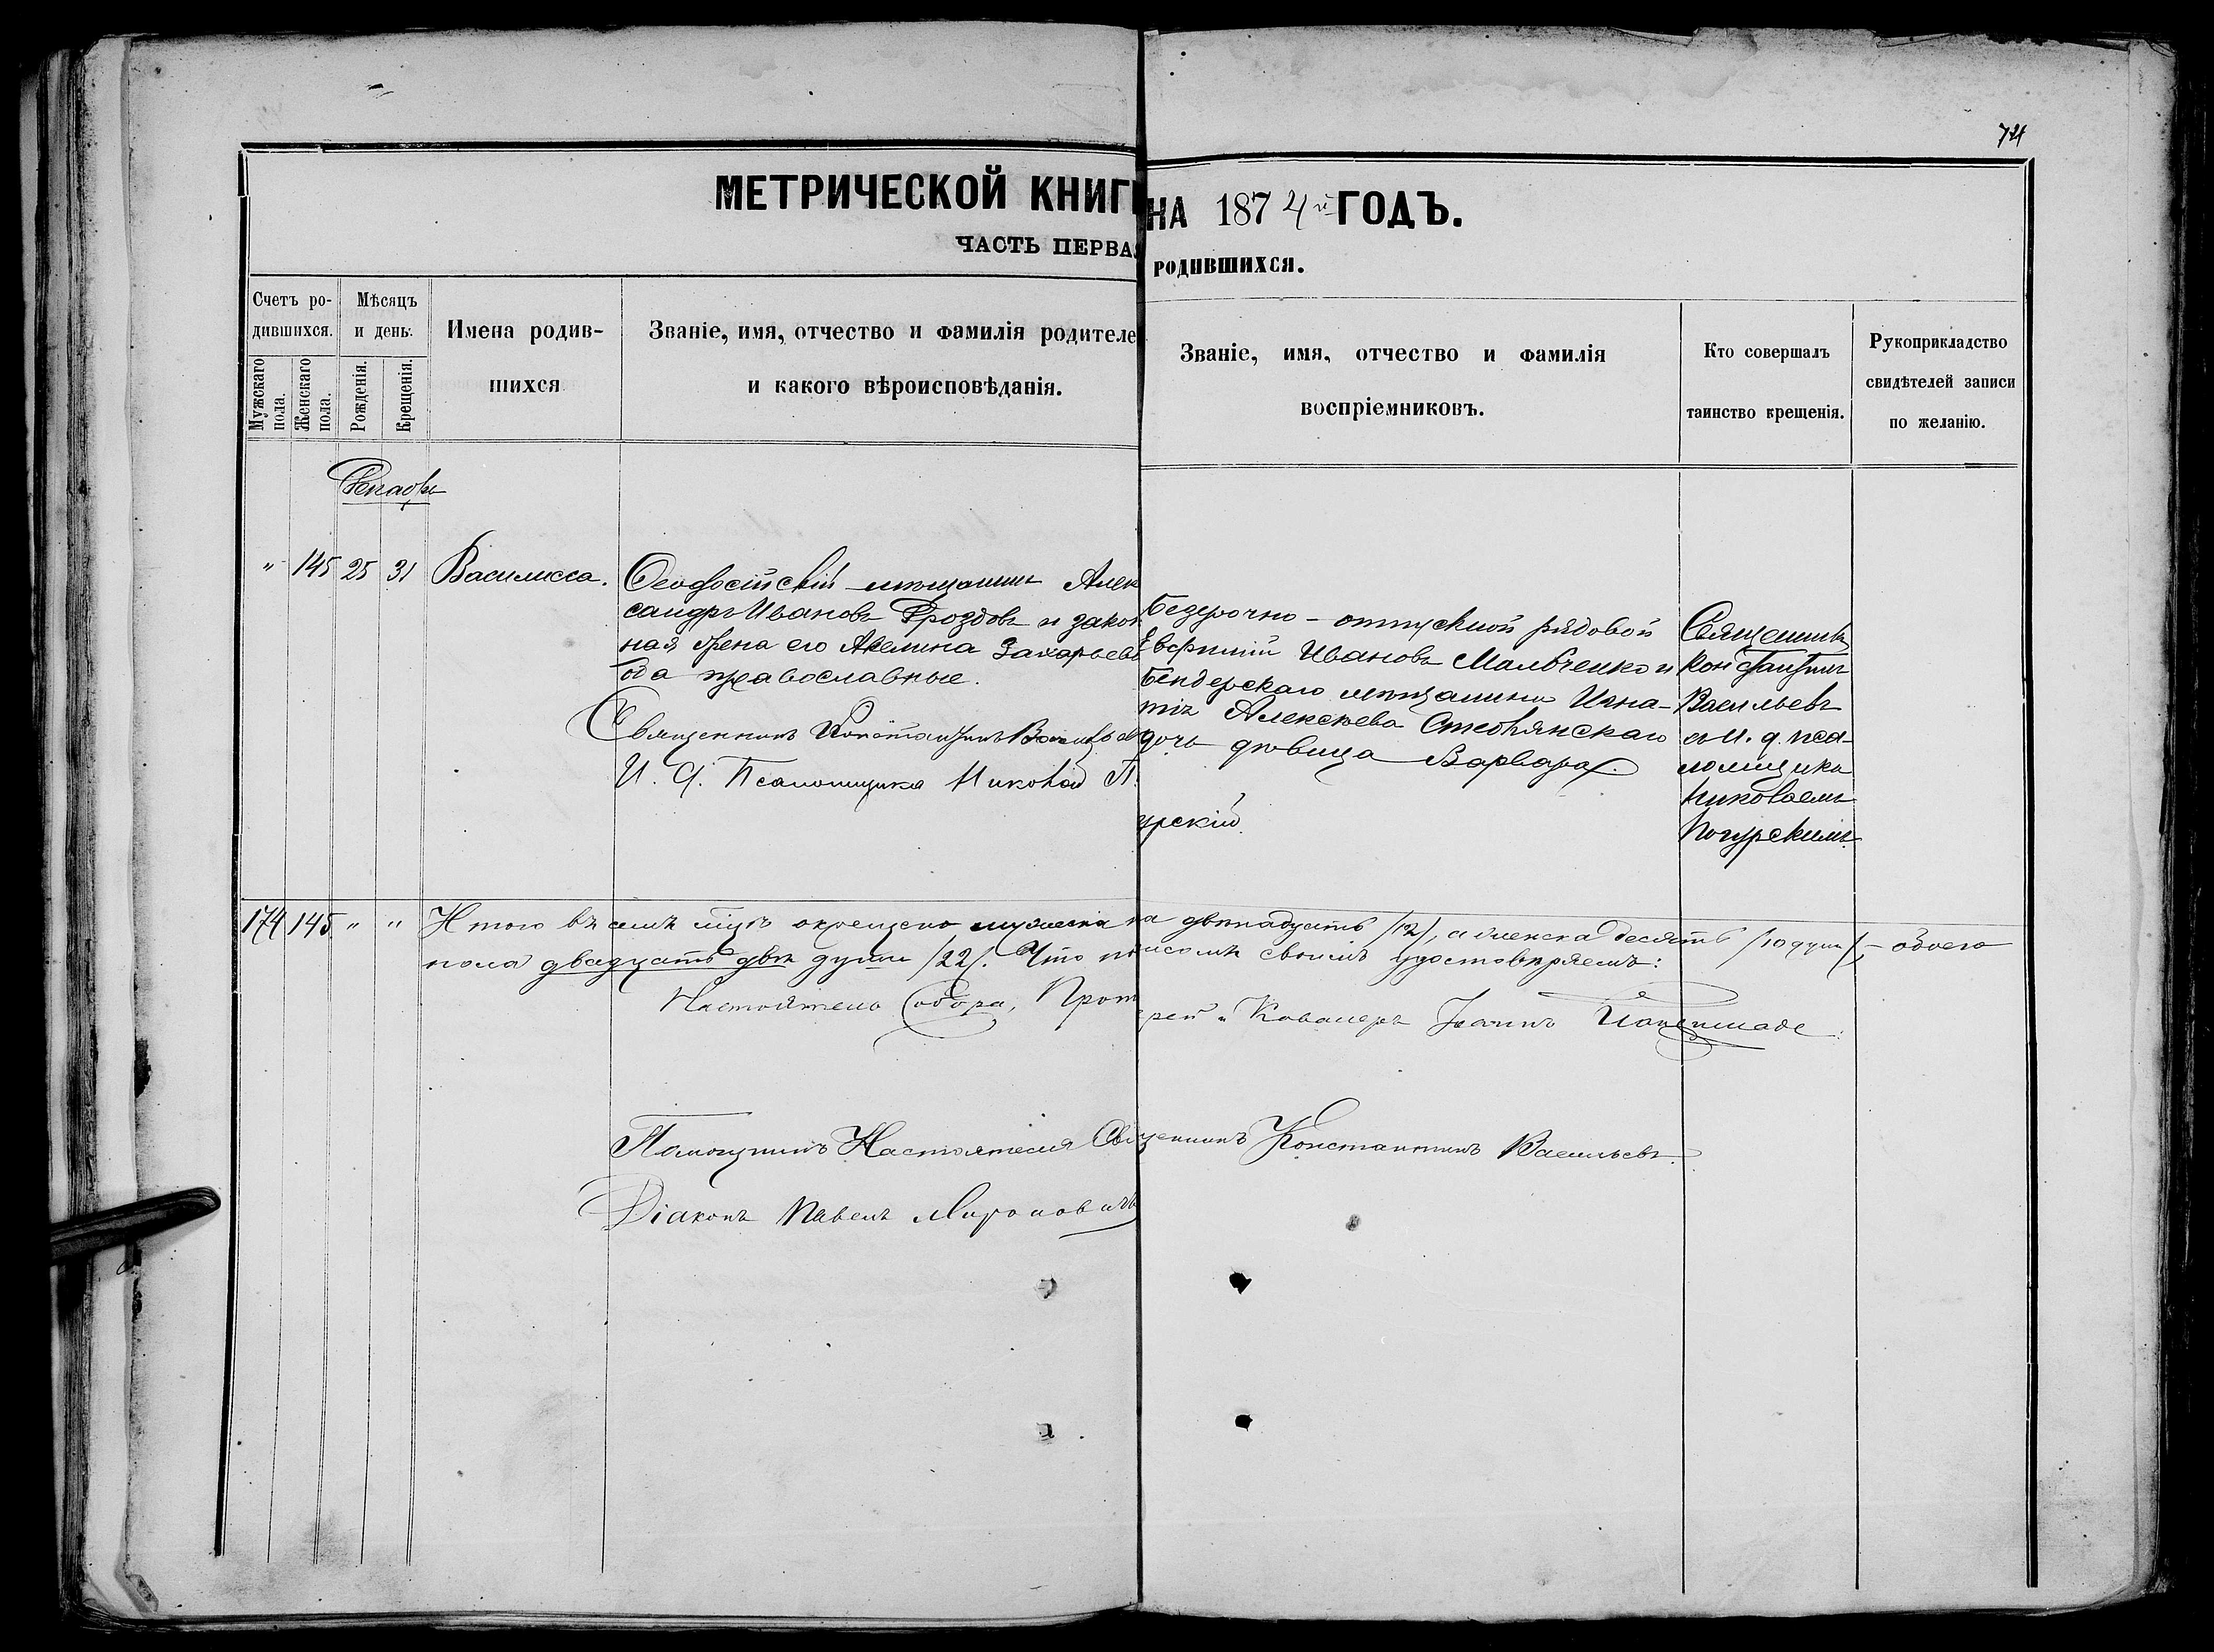 74
МЕТРИЧЕСКОЙ КНИГ
НА 1874й ГОДЪ.
ЧАСТЬ ПЕРВАЯ
РОДИВШИХСЯ.
Счетъ ро-
дившихся.
Мужскаго
пола.
Женскаго
пола.
Мѣсяцъ
и день.
Рожденія.
Крещенія.
Имена родив-
шихся
Званіе, имя, отчество и фамилія родителе
и какого вѣроисповѣданія.
Званіе, имя, отчество и фамилія
воспріемниковъ.
Кто совершалъ
таинство крещенія.
Рукоприкладство
свидѣтелей записи
по желанію.
Декабрь
" 145 25 31 Василисса.
Ѳеодосійскій мѣщанинъ Алек
сандръ Ивановъ Дроздовъ и закон
ная жена его Акелина Захарьева
оба православные.
Священникъ Константинъ Васильевъ
И. д. Псаломщика Николай П.
урскій.
Безсрочно-отпускной рядовой
Евфимій Ивановъ Мальченко и
Бендерскаго мѣщанина Игна-
тія Алексѣева Стоянскаго
дочь дѣвица Варвара.
Священникъ
Константинъ
Васильевъ
съ И. д. пса-
ломщика
Николаемъ
Погурскимъ.
174 145 " " Итого въ семъ мцѣ окрещено мужеска на двѣнадцать /12/, а женска десять /10 душъ/, – обоего
пола двадцать двѣ души /22/. Что подписомъ своимъ удостовѣряемъ:
Настоятель Собора, Прот
рей и Кавалеръ Іоаннъ
Помощникъ Настоятеля Священникъ Константинъ Васильевъ.
Діаконъ Павелъ Мироновичъ